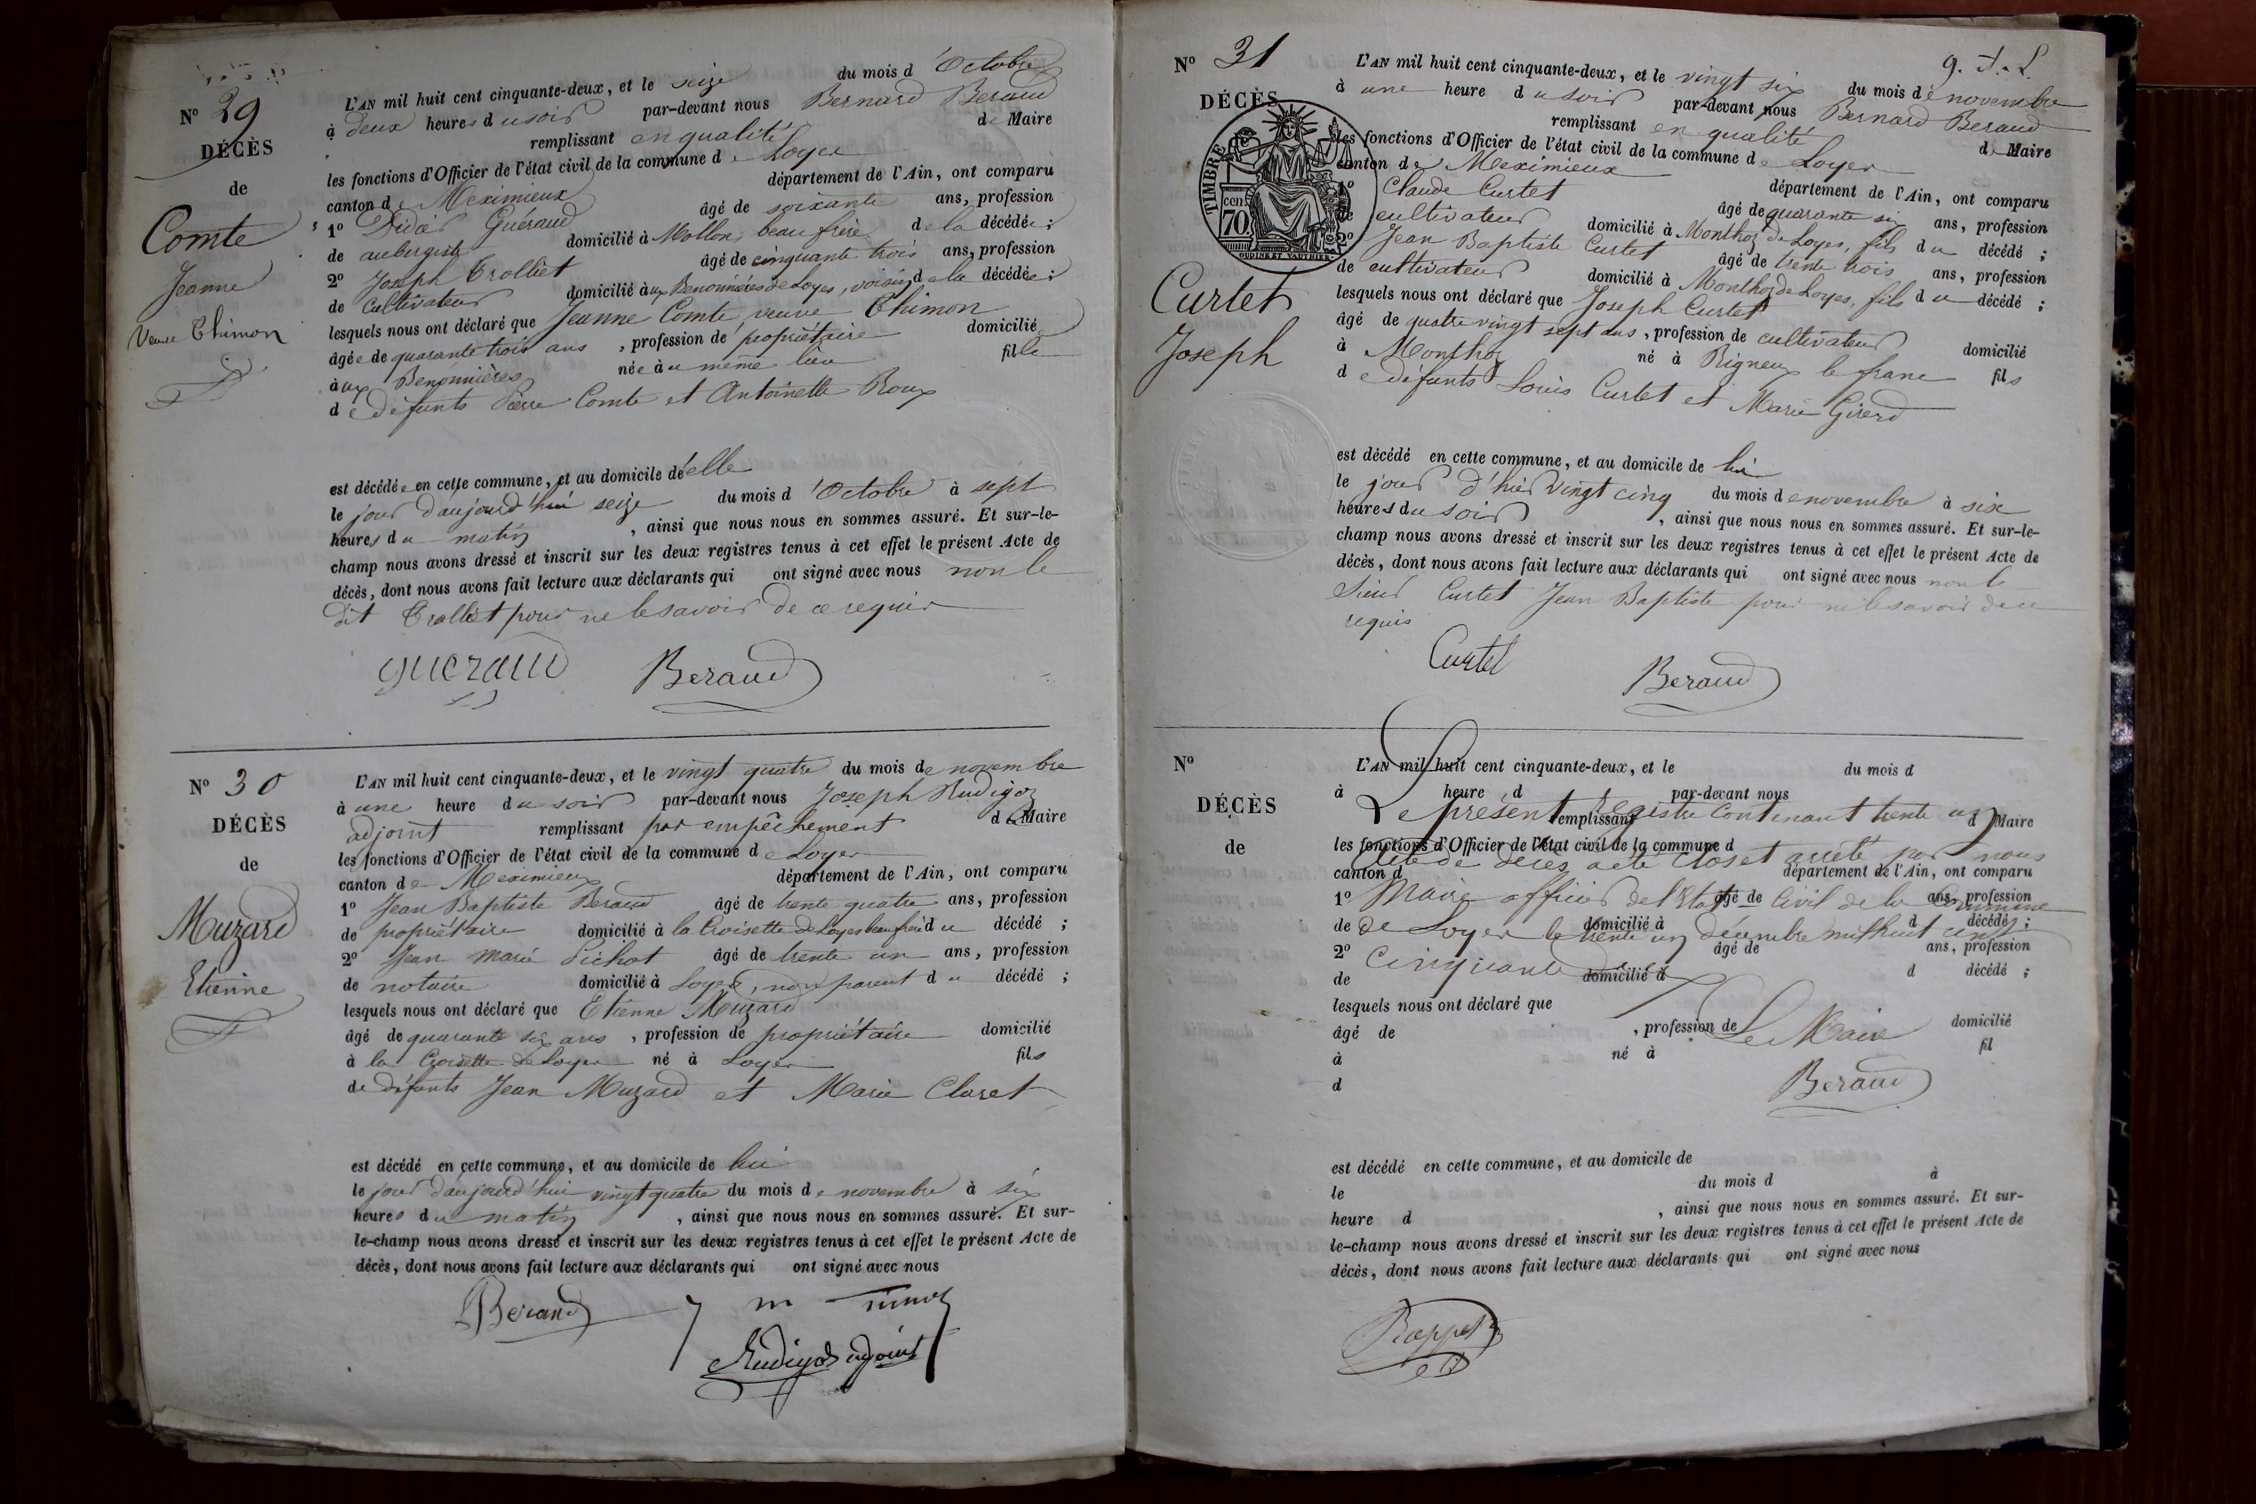 N° 29
DÉCÈS
de
Comte
Jeanne
Veuve Thimon
L'AN mil huit cent cinquante-deux, et le seize du mois d'Octobre
à deux heures du soir par-devant nous Bernard Beraud
remplissant en qualité de Maire
les fonctions d'Officier de l'état civil de la commune de Loyes
canton de Meximieux département de l'Ain, ont comparu
1° Didier Guéraud âgé de soixante ans, profession
de aubergiste domicilié à Mollon, beau frère de la décédée ;
2° Joseph Trolliet âgé de cinquante trois ans, profession
de Cultivateur domicilié aux Benonnières de Loyes, voisin de la décédée ;
lesquels nous ont déclaré que Jeanne Comte veuve Thimon
âgée de quarante trois ans , profession de propriétaire domiciliée
aux Benonnières née au même lieu fille
de défunts Pierre Comte et Antoinette Roux
est décédée en cette commune, et au domicile d'elle
le jour d'aujourd'hui seize du mois d'Octobre à sept
heures du matin , ainsi que nous nous en sommes assuré. Et sur-le-
champ nous avons dressé et inscrit sur les deux registres tenus à cet effet le présent Acte de
décès, dont nous avons fait lecture aux déclarants qui ont signé avec nous non le
dit Trolliet pour ne le savoir de ce requis
GUERAUD Beraud
N° 30
DÉCÈS
de
Muzard
Etienne
L'AN mil huit cent cinquante-deux, et le vingt quatre du mois de novembre
à une heure du soir par-devant nous Joseph Rudigoz
adjoint remplissant par empêchement de Maire
les fonctions d'Officier de l'état civil de la commune de Loyes
canton de Meximieux département de l'Ain, ont comparu
1° Jean Baptiste Beraud âgé de trente quatre ans, profession
de propriétaire domicilié à la Croisette de Loyes beau frère du décédé ;
2° Jean Marie Pichat âgé de trente un ans, profession
de notaire domicilié à Loyes, non parent du décédé ;
lesquels nous ont déclaré que Etienne Muzard
âgé de quarante six ans , profession de propriétaire domicilié
à la Croisette de Loyes né à Loyes fils
de défunts Jean Muzard et Marie Claret
est décédé en cette commune, et au domicile de lui
le jour d'aujourd'hui vingt quatre du mois de novembre à six
heures du matin , ainsi que nous nous en sommes assuré. Et sur-
le-champ nous avons dressé et inscrit sur les deux registres tenus à cet effet le présent Acte de
décès, dont nous avons fait lecture aux déclarants qui ont signé avec nous
Beraud
Rudigoz adjoint
N° 31
DÉCÈS
TIMBRE
cen. 70.
OUDINE ET VAUTHIER
Curtet
Joseph
L'AN mil huit cent cinquante-deux, et le vingt six du mois de novembre
à une heure du soir par-devant nous Bernard Beraud
remplissant en qualité de Maire
les fonctions d'Officier de l'état civil de la commune de Loyes
canton de Meximieux département de l'Ain, ont comparu
1° Claude Curtet âgé de quarante six ans, profession
de cultivateur domicilié à Monthoz de Loyes, fils du décédé ;
2° Jean Baptiste Curtet âgé de trente trois ans, profession
de cultivateur domicilié à Monthoz de Loyes, fils du décédé ;
lesquels nous ont déclaré que Joseph Curtet
âgé de quatre vingt sept ans , profession de cultivateur domicilié
à Monthoz né à Rigneux le franc fils
de défunts Louis Curtet et Marie Girerd
est décédé en cette commune, et au domicile de lui
le jour d'hier vingt cinq du mois de novembre à six
heures du soir , ainsi que nous nous en sommes assuré. Et sur-le-
champ nous avons dressé et inscrit sur les deux registres tenus à cet effet le présent Acte de
décès, dont nous avons fait lecture aux déclarants qui ont signé avec nous non le
Sieur Curtet Jean Baptiste pour ne le savoir de ce
requis
Curtet Beraud
N°
DÉCÈS
de
L'AN mil huit cent cinquante-deux, et le du mois d
à heure d par-devant nous
Le présent Registre contenant trente un
remplissant d Maire
les fonctions d'Officier de l'état civil de la commune d
acte de décès a été clos et arrêté par nous
canton d département de l'Ain, ont comparu
1° âgé de ans, profession
Maire officier de l'Etat Civil de la Commune
de domicilié à d décédé ;
de Loyes le trente un décembre mil huit cent
2° âgé de ans, profession
Cinquante deux
de domicilié à d décédé ;
lesquels nous ont déclaré que
âgé de , profession de domicilié
Le Maire
à né à fil
d
Beraud
est décédé en cette commune, et au domicile de
le du mois d à
heure d , ainsi que nous nous en sommes assuré. Et sur-
le-champ nous avons dressé et inscrit sur les deux registres tenus à cet effet le présent Acte de
décès, dont nous avons fait lecture aux déclarants qui ont signé avec nous